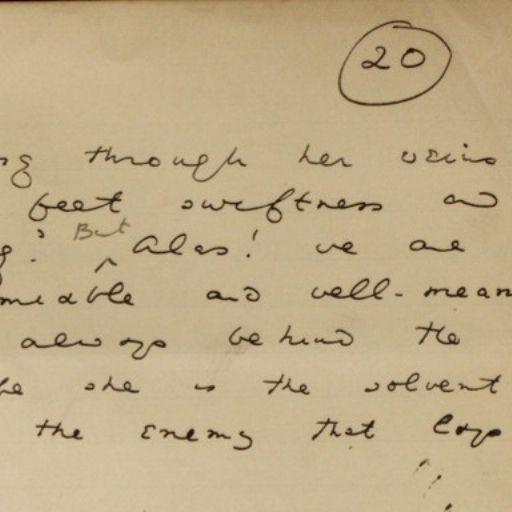 20
through her veins
feet swiftness and
? But Alas! we are
and well-mean
always behind the
she is the solvent
the enemy that lays